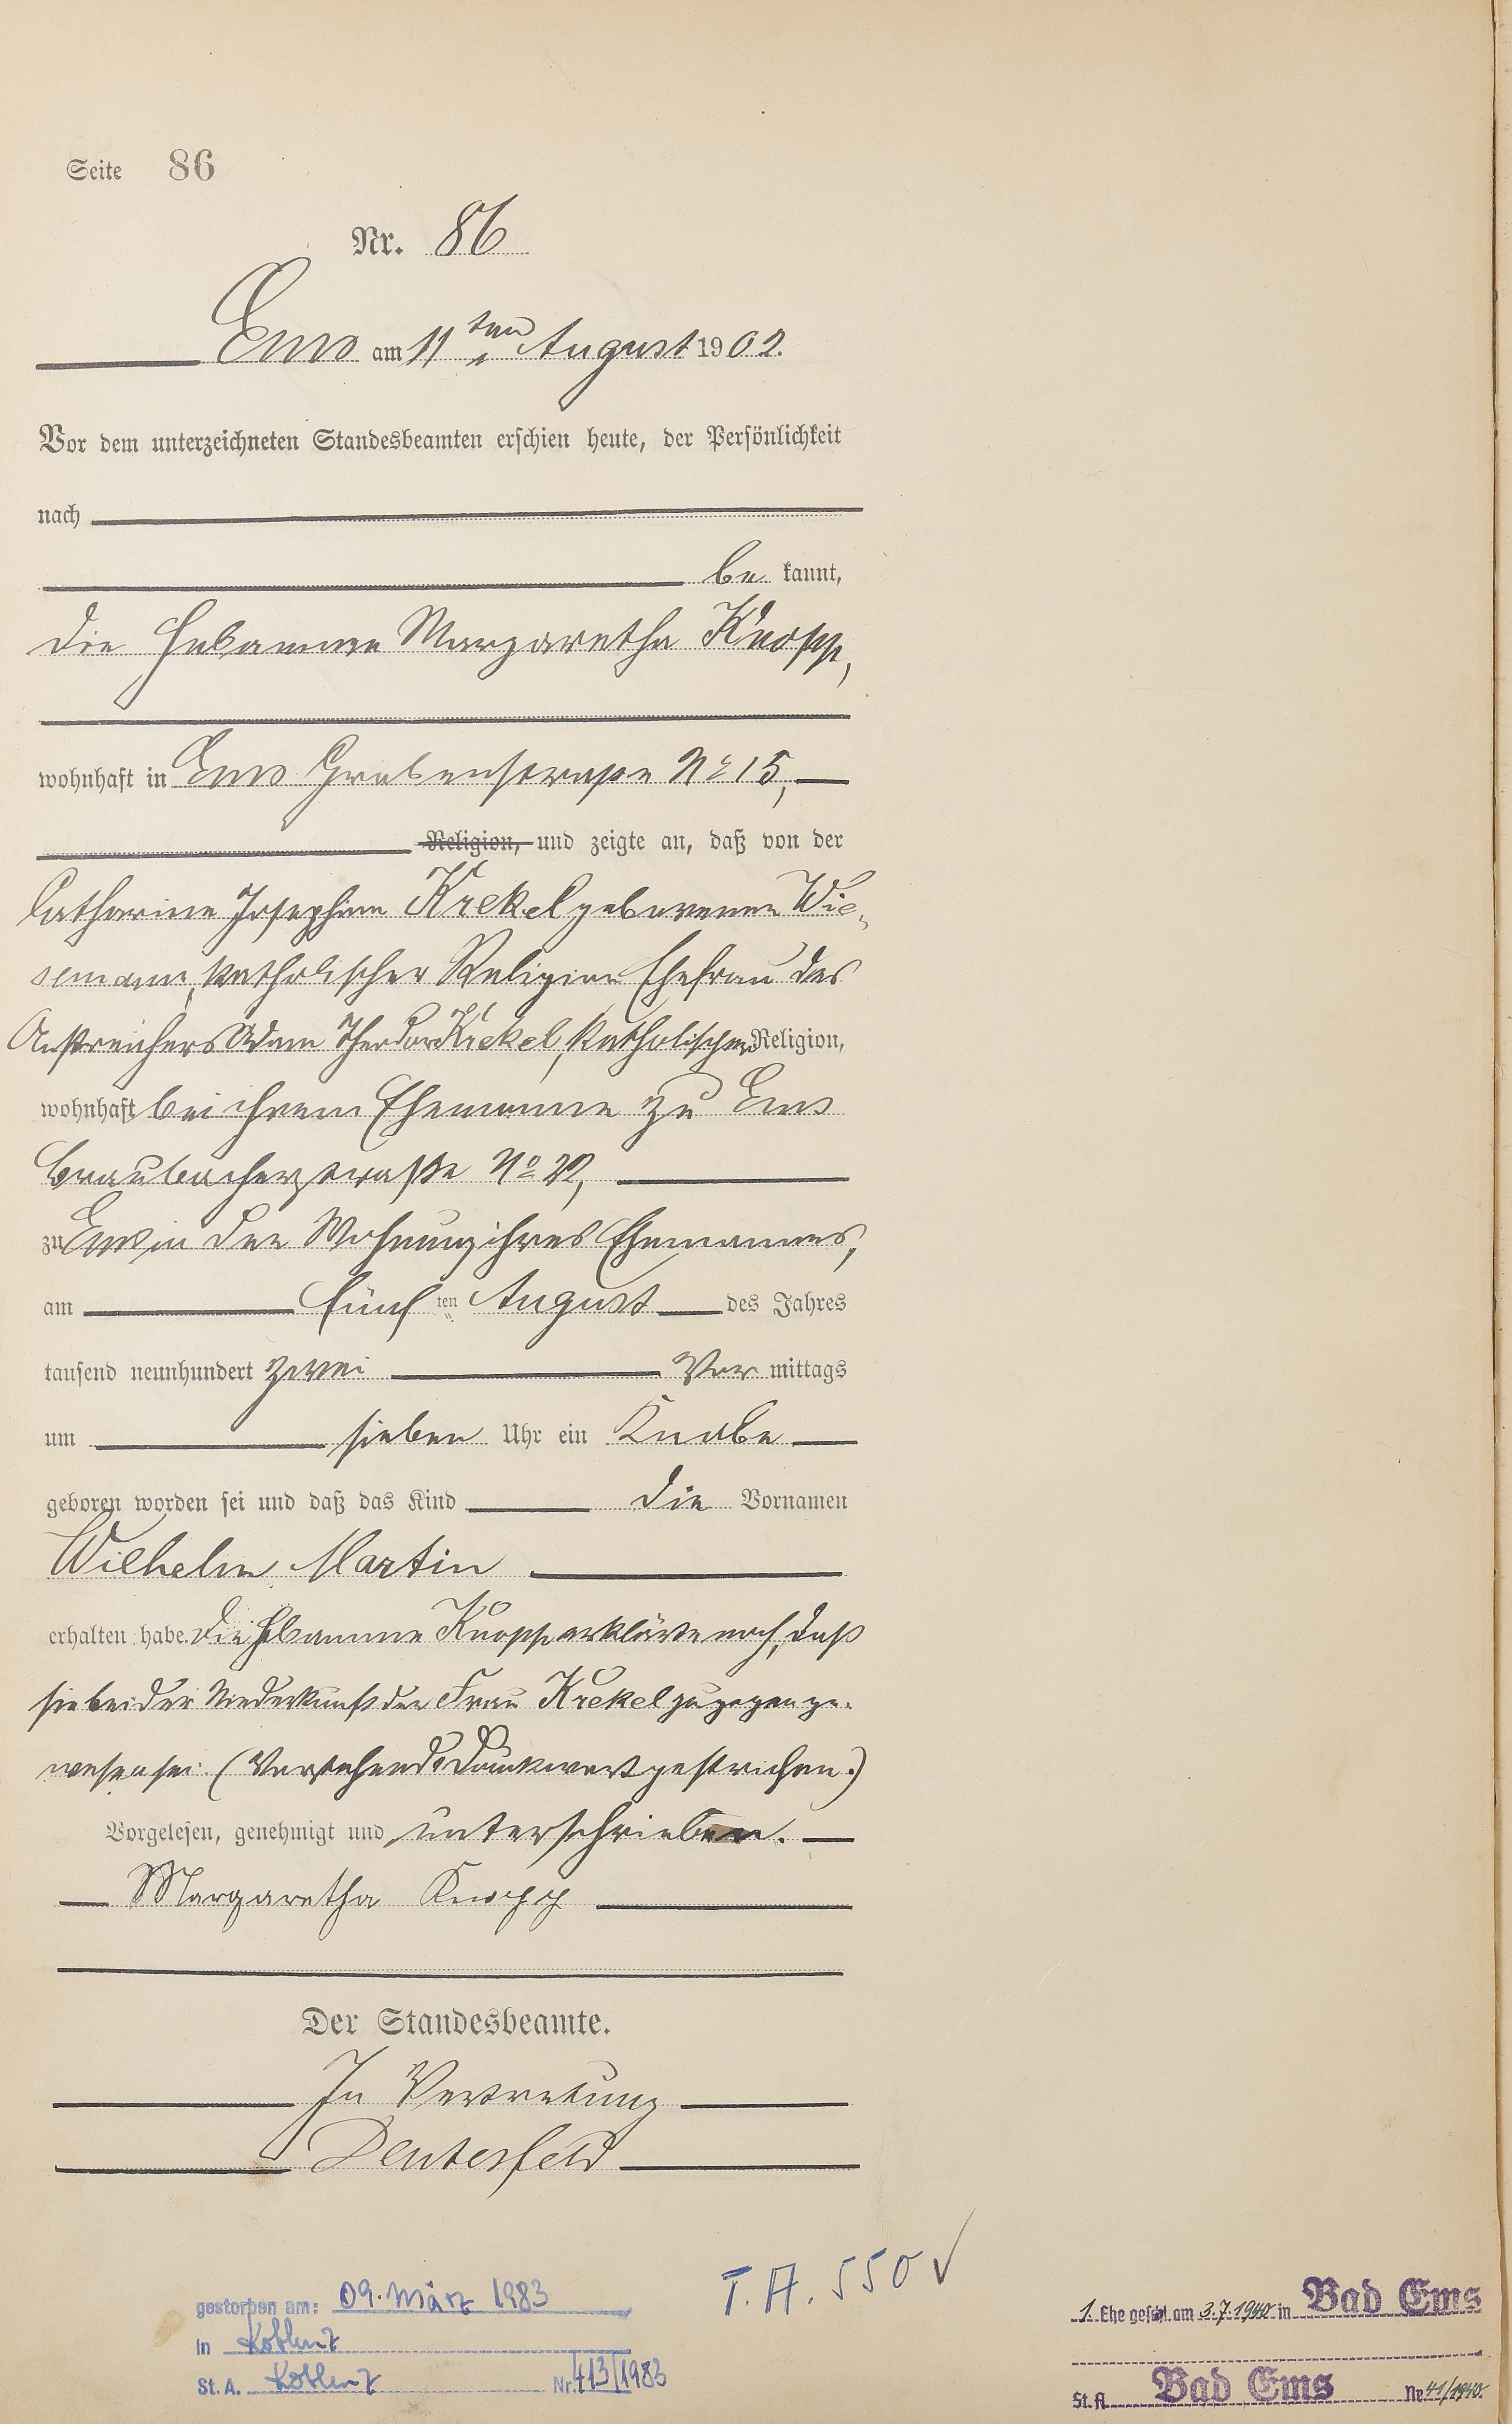 Seite 86
Nr. 86
Ems am 11ten August 1902.
Vor dem unterzeichneten Standesbeamten erschien heute, der Persönlichkeit
nach
be kannt,
die Hebamme Margaretha Knopp,
wohnhaft in Ems Grabenstrasse No 15,
Religion, und zeigte an, daß von der
Catharine Josephine Krekel geborenen Wie-
semann, katholischer Religion Ehefrau des
Anstreichers Adam Theodor Krekel, katholischer Religion,
wohnhaft bei ihrem Ehemanne zu Ems
Braubacherstraße No 22,
zu Ems in der Wohnung ihres Ehemannes,
am fünf ten August des Jahres
tausend neunhundert zwei Vor mittags
um sieben Uhr ein Knabe
geboren worden sei und daß das Kind die Vornamen
Wilhelm Martin
erhalten habe. Die Hebamme Knopp erklärte noch, daß
sie bei der Niederkunft der Frau Krekel zugegen ge-
wesen sei. (Vorstehend Druckwort gestrichen.)
Vorgelesen, genehmigt und unterschrieben.
Margaretha Knopp
Der Standesbeamte.
In Vertretung
gestorben am: 09. März 1983
in Koblenz
St. A. Koblenz Nr. 413/1983
T. A. 550 ✓
1. Ehe geschl. am 3.7.1940 in Bad Ems
St. A. Bad Ems Nr. 41/1940.